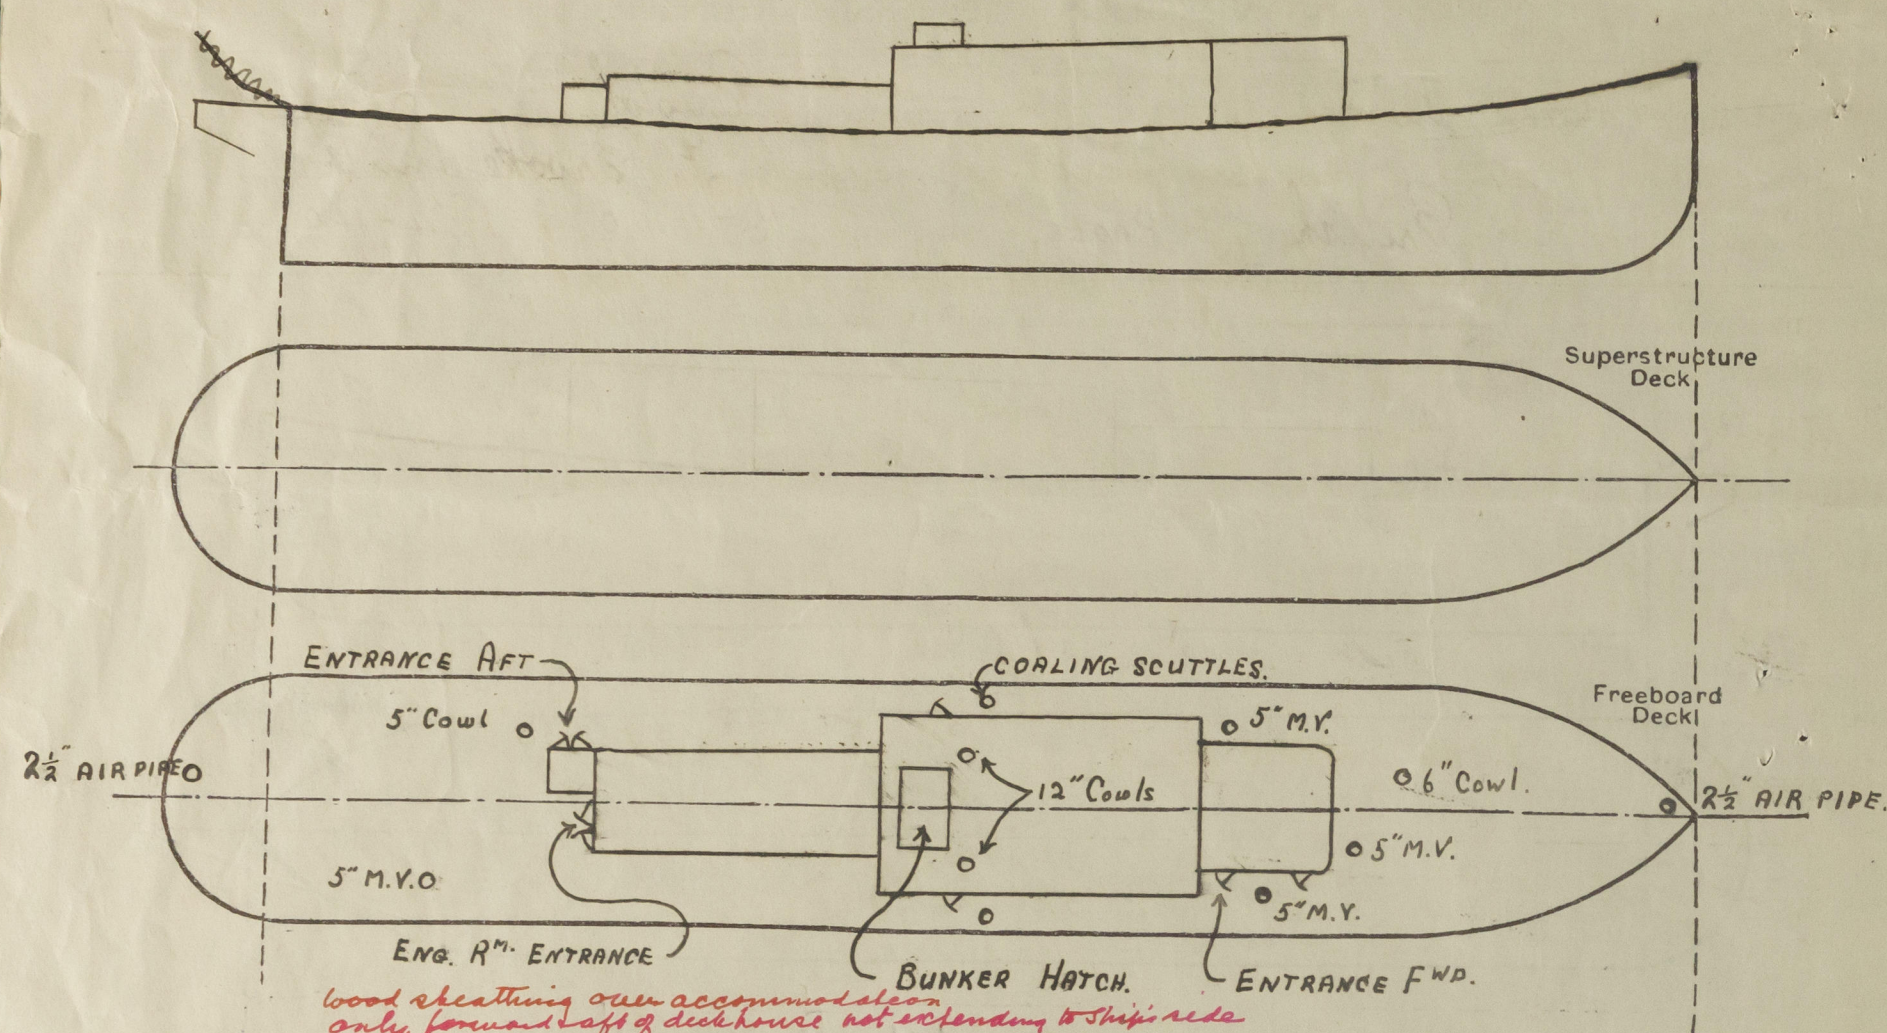 Superstructure
Deck
ENTRANCE AFT
COALING SCUTTLES.
Freeboard
Deck
5" Cowl
5" M.V.
2½" AIR PIPE
12" Cowls
6" Cowl.
2½" AIR PIPE.
5" M.V.
5" M.V.
5" M.V.
ENG. RM. ENTRANCE
BUNKER HATCH.
ENTRANCE FWD.
wood sheathing over accommodation
only forward & aft of deckhouse not extending to ship's side